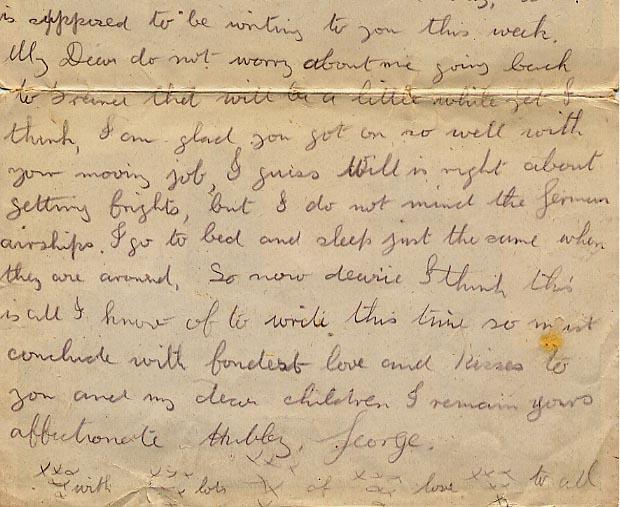 is supposed to be writing to you this week.
My Dear do not worry about me going back
to France that will be a little while yet I
think, I am glad you got on so well with
your moving job, I guess Will is right about
getting frights, but I do not mind the German
airships. I go to bed and sleep just the same when
they are around, So now dearie I think this
is all I know of to write this time so must
conclude with fondest love and Kisses to
you and my dear children I remain yours
affectionate Hubby, George.
xxx with xxx lots xxx of xxx love xxx to all